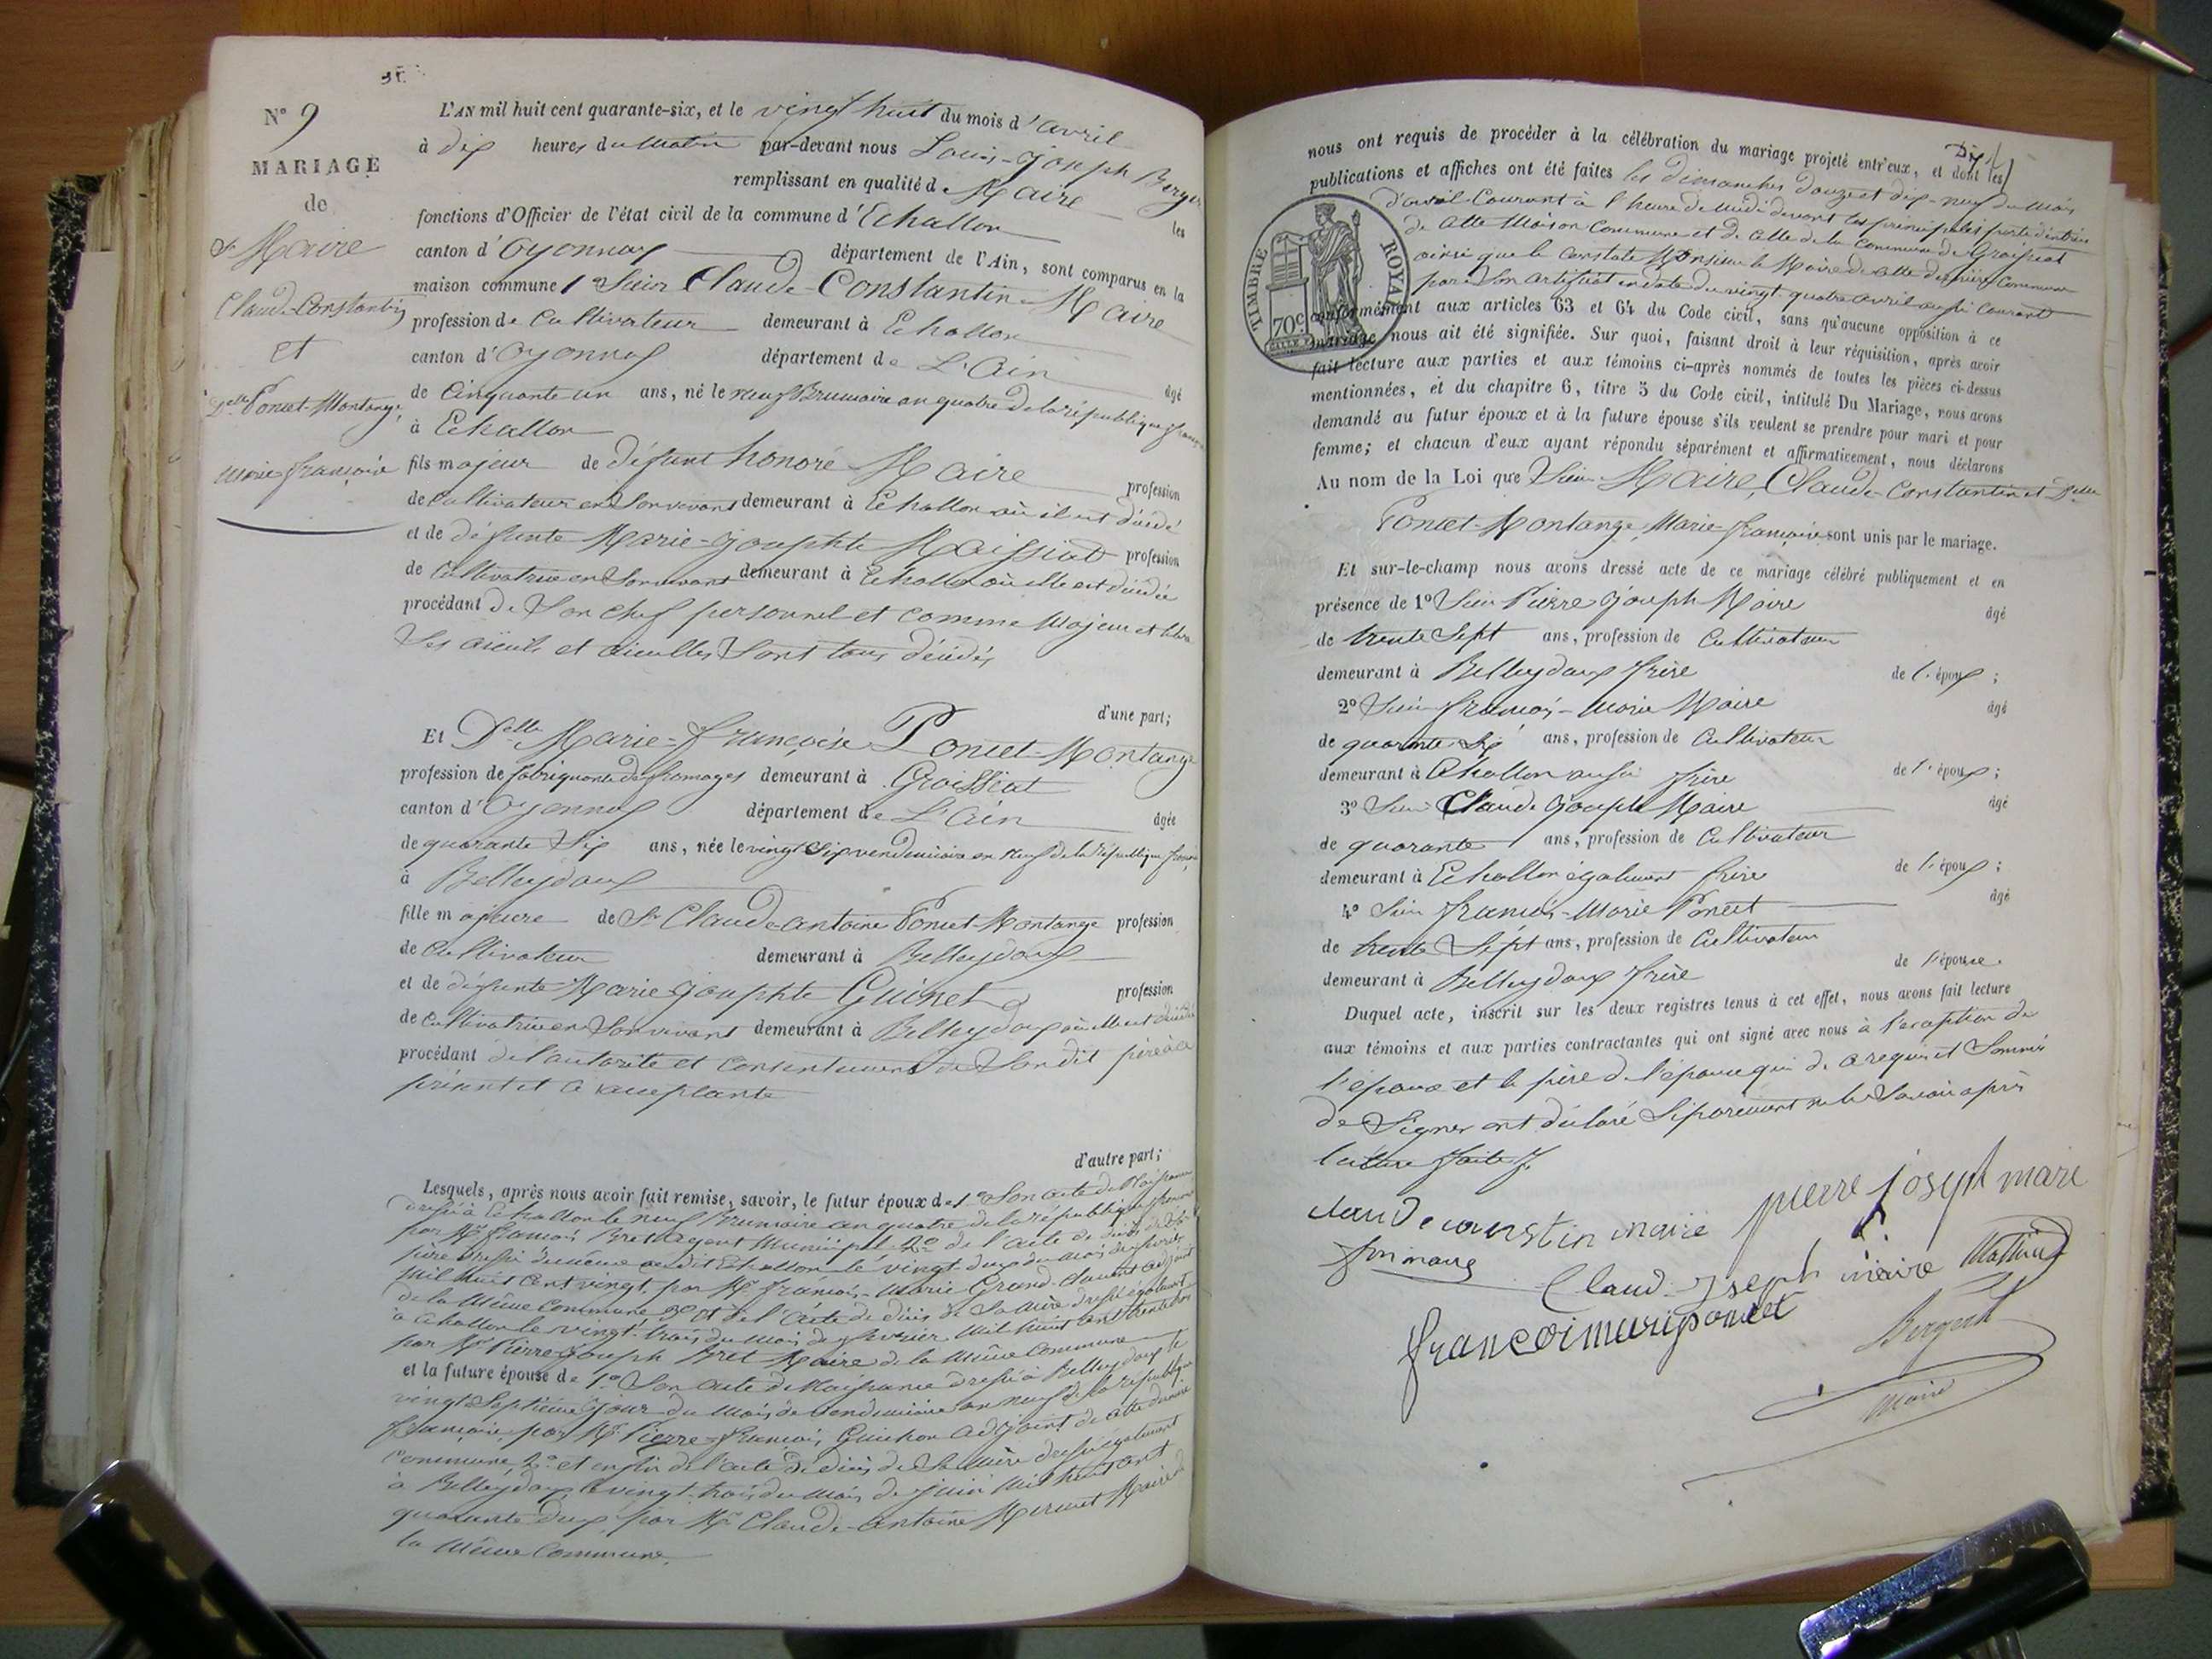 N° 9
MARIAGE
de
Sr Maire
Claude-Constantin
et
Delle Poncet-Montange,
Marie-françoise
L'AN mil huit cent quarante-six, et le vingt huit du mois d'avril
à dix heures du matin par-devant nous Louis-Joseph
remplissant en qualité de Maire les
fonctions d'Officier de l'état civil de la commune d'Echallon
canton d'Oyonnax département de l'Ain, sont comparus en la
maison commune 1° Sieur Claude-Constantin Maire
profession de Cultivateur demeurant à Echallon
canton d'Oyonnax département de L'Ain âgé
de Cinquante un ans, né le neuf Brumaire an quatre de la république
à Echallon
fils majeur de défunt honoré Maire profession
de Cultivateur en son vivant demeurant à Echallon où il est décédé
et de défunte Marie-Josephte Maissiat profession
de Cultivatrice en son vivant demeurant à Echallon où elle est décédée
procédant de Son chef personnel et comme Majeur et libre
Ses aïeuls et aïeulles Sont tous décédés
d'une part;
Et Delle Marie-françoise Poncet-Montange
profession de fabriquante de fromages demeurant à Groissiat
canton d'Oyonnax département de L'Ain âgée
de quarante Six ans, née le vingt Six vendemiaire an neuf de la République
à Belleydoux
fille majeure de Sr Claude-antoine Poncet-Montange profession
de Cultivateur demeurant à Belleydoux
et de défunte Marie-Josephte Guinet profession
de Cultivatrice en Son vivant demeurant à Belleydoux où elle est décédée
procédant de l'autorité et Consentement de Son dit père à ce
présent et acceptante
d'autre part;
Lesquels, après nous avoir fait remise, savoir, le futur époux de 1° Son acte de Naissance
dressé à Echallon le neuf Brumaire an quatre de la république
par Mr françois Bret agent Municipal 2° de l'acte de décès de
père dressé de même au dit Echallon le vingt-deux du mois de
mil huit Cent vingt, par Mr françois-Marie Grand-Clément adjoint
de la Même Commune 3° et de l'acte de décès de Sa Mère dressé également
à Echallon le vingt-trois du mois de février Mil huit cent
par Mr Pierre-Joseph Bret Maire de la Même Commune
et la future épouse de 1° Son acte de Naissance dressé à Belleydoux le
vingt Septième jour du Mois de Vendemiaire an neuf de la république
française, par Mr Pierre-françois Guichon adjoint de cette
Commune, 2° et enfin de l'acte de décès de Sa Mère dressé également
à Belleydoux le vingt-trois du Mois de juin Mil huit cent
quarante deux, par Mr Claude-antoine Mermet Maire de
la Même Commune.
nous ont requis de procéder à la célébration du mariage projeté entr'eux, et dont les
publications et affiches ont été faites les dimanches douze et dix-neuf du mois
d'avril Courant à l'heure de Midi devant les principales porte d'entrée
de cette Maison Commune et de celle de la Commune de Groissiat
ainsi que le Constate Monsieur le Maire de cette dernière Commune
par Son certificat en date du vingt-quatre avril aussi Courant
TIMBRE ROYAL
70 c
conformément aux articles 63 et 64 du Code civil, sans qu'aucune opposition à ce
mariage nous ait été signifiée. Sur quoi, faisant droit à leur réquisition, après avoir
fait lecture aux parties et aux témoins ci-après nommés de toutes les pièces ci-dessus
mentionnées, et du chapitre 6, titre 5 du Code civil, intitulé Du Mariage, nous avons
demandé au futur époux et à la future épouse s'ils veulent se prendre pour mari et pour
femme; et chacun d'eux ayant répondu séparément et affirmativement, nous déclarons
Au nom de la Loi que Sieur Maire, Claude Constantin et Delle
Poncet-Montange, Marie-françoise sont unis par le mariage.
Et sur-le-champ nous avons dressé acte de ce mariage célébré publiquement et en
présence de 1° Sieur Pierre Joseph Maire âgé
de trente Sept ans, profession de Cultivateur
demeurant à Belleydoux frère de l'époux;
2° Sieur françois-Marie Maire âgé
de quarante Six ans, profession de Cultivateur
demeurant à Echallon aussi frère de l'époux;
3° Sieur Claude Joseph Maire âgé
de quarante ans, profession de Cultivateur
demeurant à Echallon également frère de l'époux;
4° Sieur françois-Marie Poncet âgé
de trente Sept ans, profession de Cultivateur
demeurant à Belleydoux frère de l'épouse.
Duquel acte, inscrit sur les deux registres tenus à cet effet, nous avons fait lecture
aux témoins et aux parties contractantes qui ont signé avec nous à l'exception de
l'épouse et le père de l'épouse qui de ce requis et Sommés
de Signer ont déclaré Séparément ne le Savoir après
lecture faite
claude constin maire pierre joseph maire
fm maire Claud Joseph maire
francoimariponcet
Maire